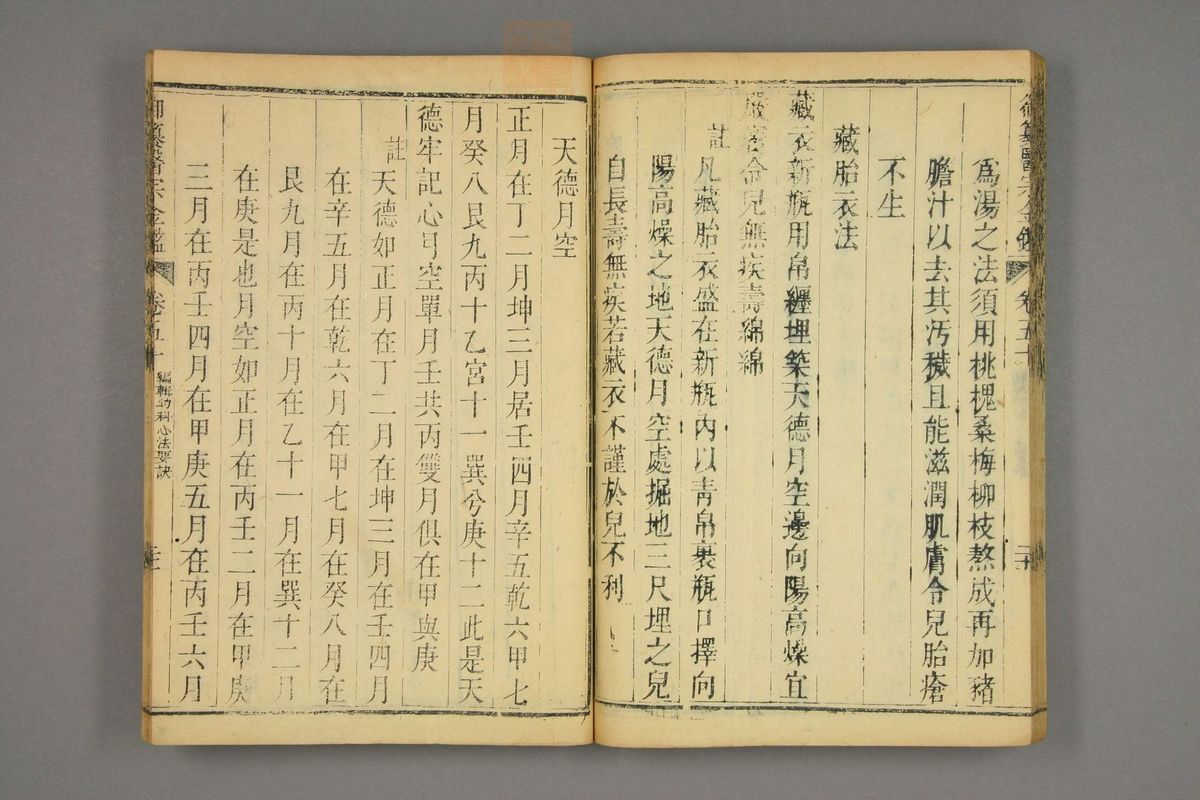 御纂醫宗金鑑 卷五十
爲湯之法須用桃槐桑梅柳枝熬成再加豬
膽汁以去其汚穢且能滋潤肌膚令兒胎瘡
不生
藏胎衣法
藏衣新瓶用帛纏埋築天德月空邊向陽高燥宜
嚴密令兒無疾壽綿綿
註凡藏胎衣盛在新瓶內以青帛裹瓶口擇向
陽高燥之地天德月空處掘地三尺埋之兒
自長壽無疾若藏衣不謹於兒不利
天德月空
正月在丁二月坤三月居壬四月辛五乾六甲七
月癸八艮九丙十乙宮十一巽兮庚十二此是天
德牢記心弓空單月壬共丙雙月俱在甲與庚
註天德如正月在丁二月在坤三月在壬四月
在辛五月在乾六月在甲七月在癸八月在
艮九月在丙十月在乙十一月在巽十二月
在庚是也月空如正月在丙壬二月在甲庚
三月在丙壬四月在甲庚五月在丙壬六月
御纂醫宗金鑑 卷五十 編輯幼科心法要訣